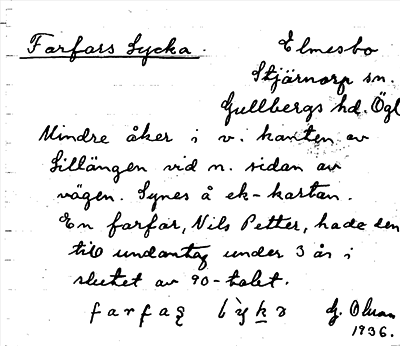 Farfars Lycka.
Elmesbo
Stjärnorp sn.
Gullbergs hd. Ögl
Mindre åker i v. kanten av
Lillängen vid n. sidan av
vägen. Synes å ek-kartan.
En farfar, Nils Petter, hade den
till undantag under 3 år i
slutet av 90-talet.
farfaꞩ
G. Olsson
1936.